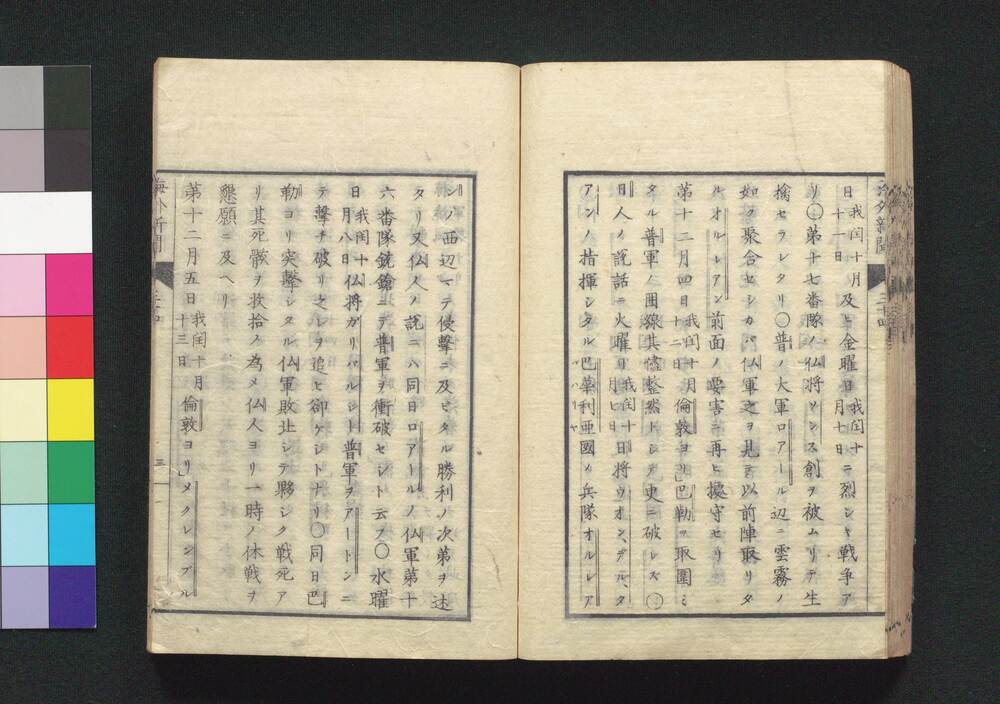 海外新聞
三十四
日 我閏十月十一日 及ヒ金曜日 我閏十月十日 ニ烈シキ戦争ア
リ〇第十七番隊ノ仏将ソンス創ヲ被ムリテ生
擒セラレタリ〇普ノ大軍ロアール辺ニ雲霧ノ
如ク聚合セシカバ仏軍之ヲ見テ以前陣取リタ
ルオルレアン前面ノ要害ニ再ヒ據守セリ
第十二月四日 我閏十月十二日 倫敦ヨリ」巴勒ヲ取圍ミ
タル普軍ノ囲線其儘整然トシテ更ニ破レズ〇
日人ノ説話ニ火曜日 我閏十月七日 日将ウオン、デル、タ
アンノ指揮シタル巴華利亜國ノ兵隊オルレア
バハリーヤ
ンノ西辺マテ侵撃ニ及ヒタル勝利ノ次第ヲ述
タリ又仏人ノ説ニハ同日ロアールノ仏軍第十
六番隊銃鎗ニテ普軍ヲ衝破セシト云フ〇水曜
日 我閏十月八日 仏将ガリバルジー普軍ヲアートンニ
テ撃チ破リ之レヲ追ヒ却ケシトナリ〇同日巴
勒ヨリ突撃シタル仏軍敗北シテ夥シク戦死ア
リ其死骸ヲ救拾ノ為メ仏人ヨリ一時ノ休戦ヲ
懇願ニ及ヘリ
第十二月五日 我閏十月十三日 倫敦ヨリ」メクレンブル
海外新聞
三十四
三